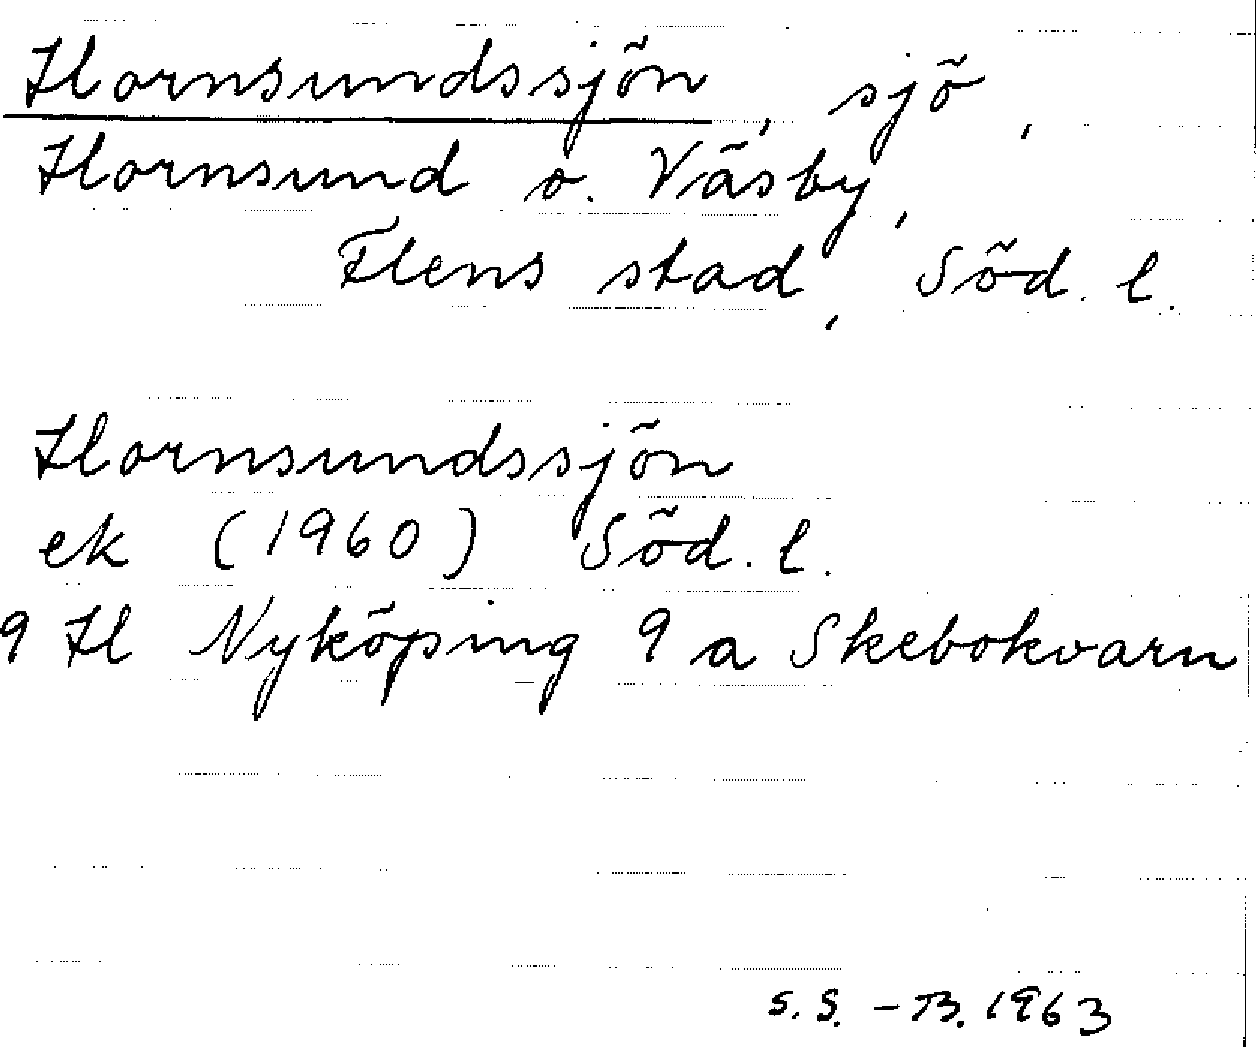 Hornsundssjön, sjö,
Hornsund o. Väsby,
Flens stad, Söd. l.
Hornsundssjön
ek (1960) Söd. l.
9 H Nyköping 9 a Skebokvarn
S. S. - B. 1963